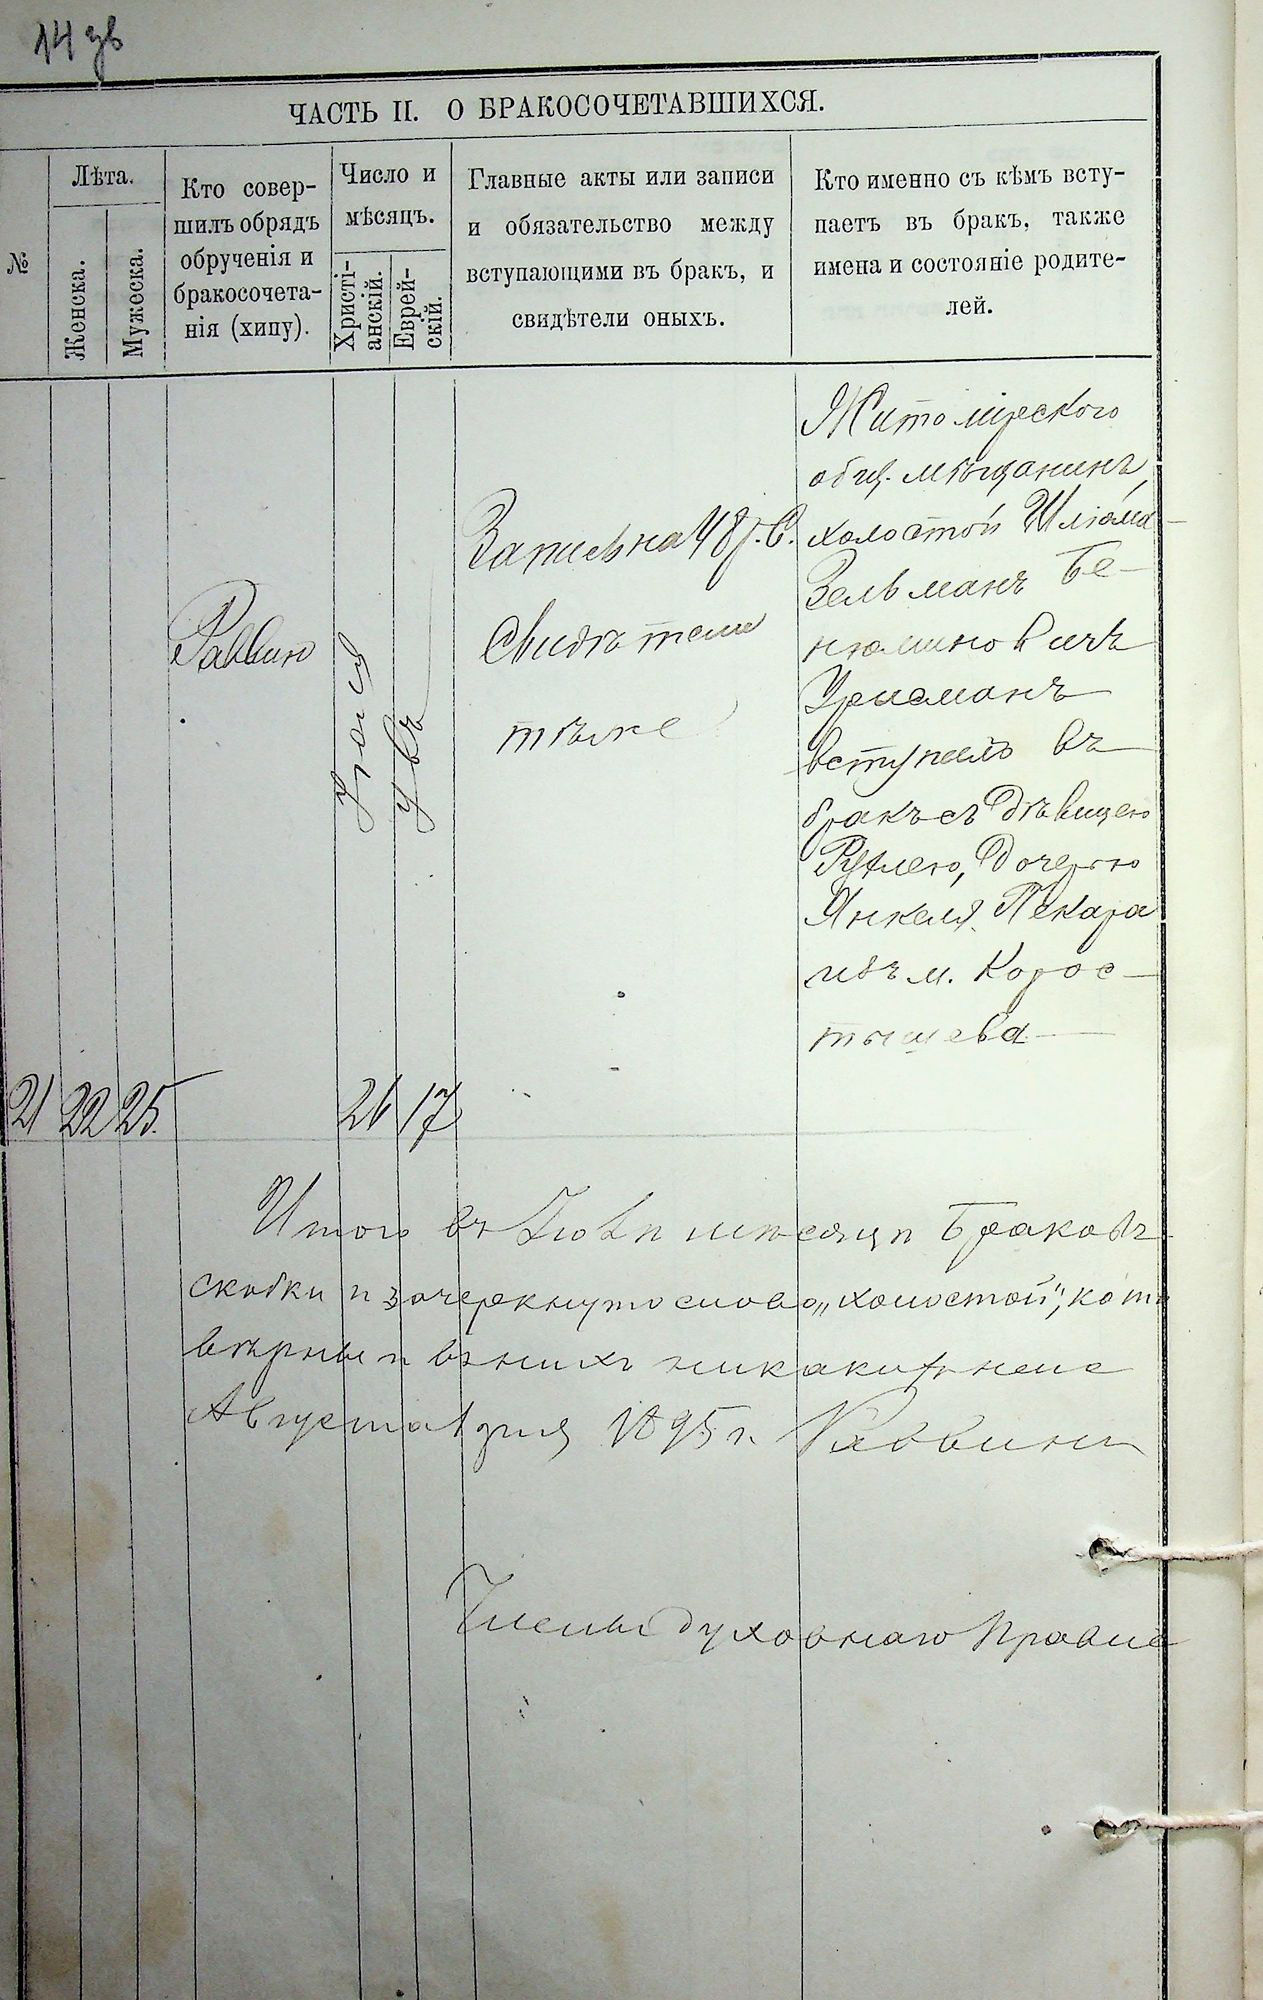 14 зв
ЧАСТЬ II. О БРАКОСОЧЕТАВШИХСЯ.
№
Лѣта.
Женска.
Мужеска.
Кто совер-
шилъ обрядъ
обрученія и
бракосочета-
нія (хипу).
Число и
мѣсяцъ.
Христі-
анскій.
Еврей-
скій.
Главные акты или записи
и обязательство между
вступающими въ бракъ, и
свидѣтели оныхъ.
Кто именно съ кѣмъ всту-
паетъ въ бракъ, также
имена и состояніе родите-
лей.
21
22
25
Раввин
26
17
Запись на 48 р. С.
Свидѣтели
тѣ же
Житомірского
общ. мѣщанинъ,
холостой Шлёма-
Зельманъ Бе-
нюминовичъ
вступилъ въ
бракъ съ дѣвицею
Рухлею, дочерью
Янкеля Пекара
изъ м. Корос-
тышева
Итого въ Іюлѣ мѣсяцѣ браковъ
скобки и зачеркнуто слово „холостой“, кото
вѣрны и въ нихъ никакихъ неис
Августа 1 дня 1895 г. Раввинъ
Члены духовнаго Правле